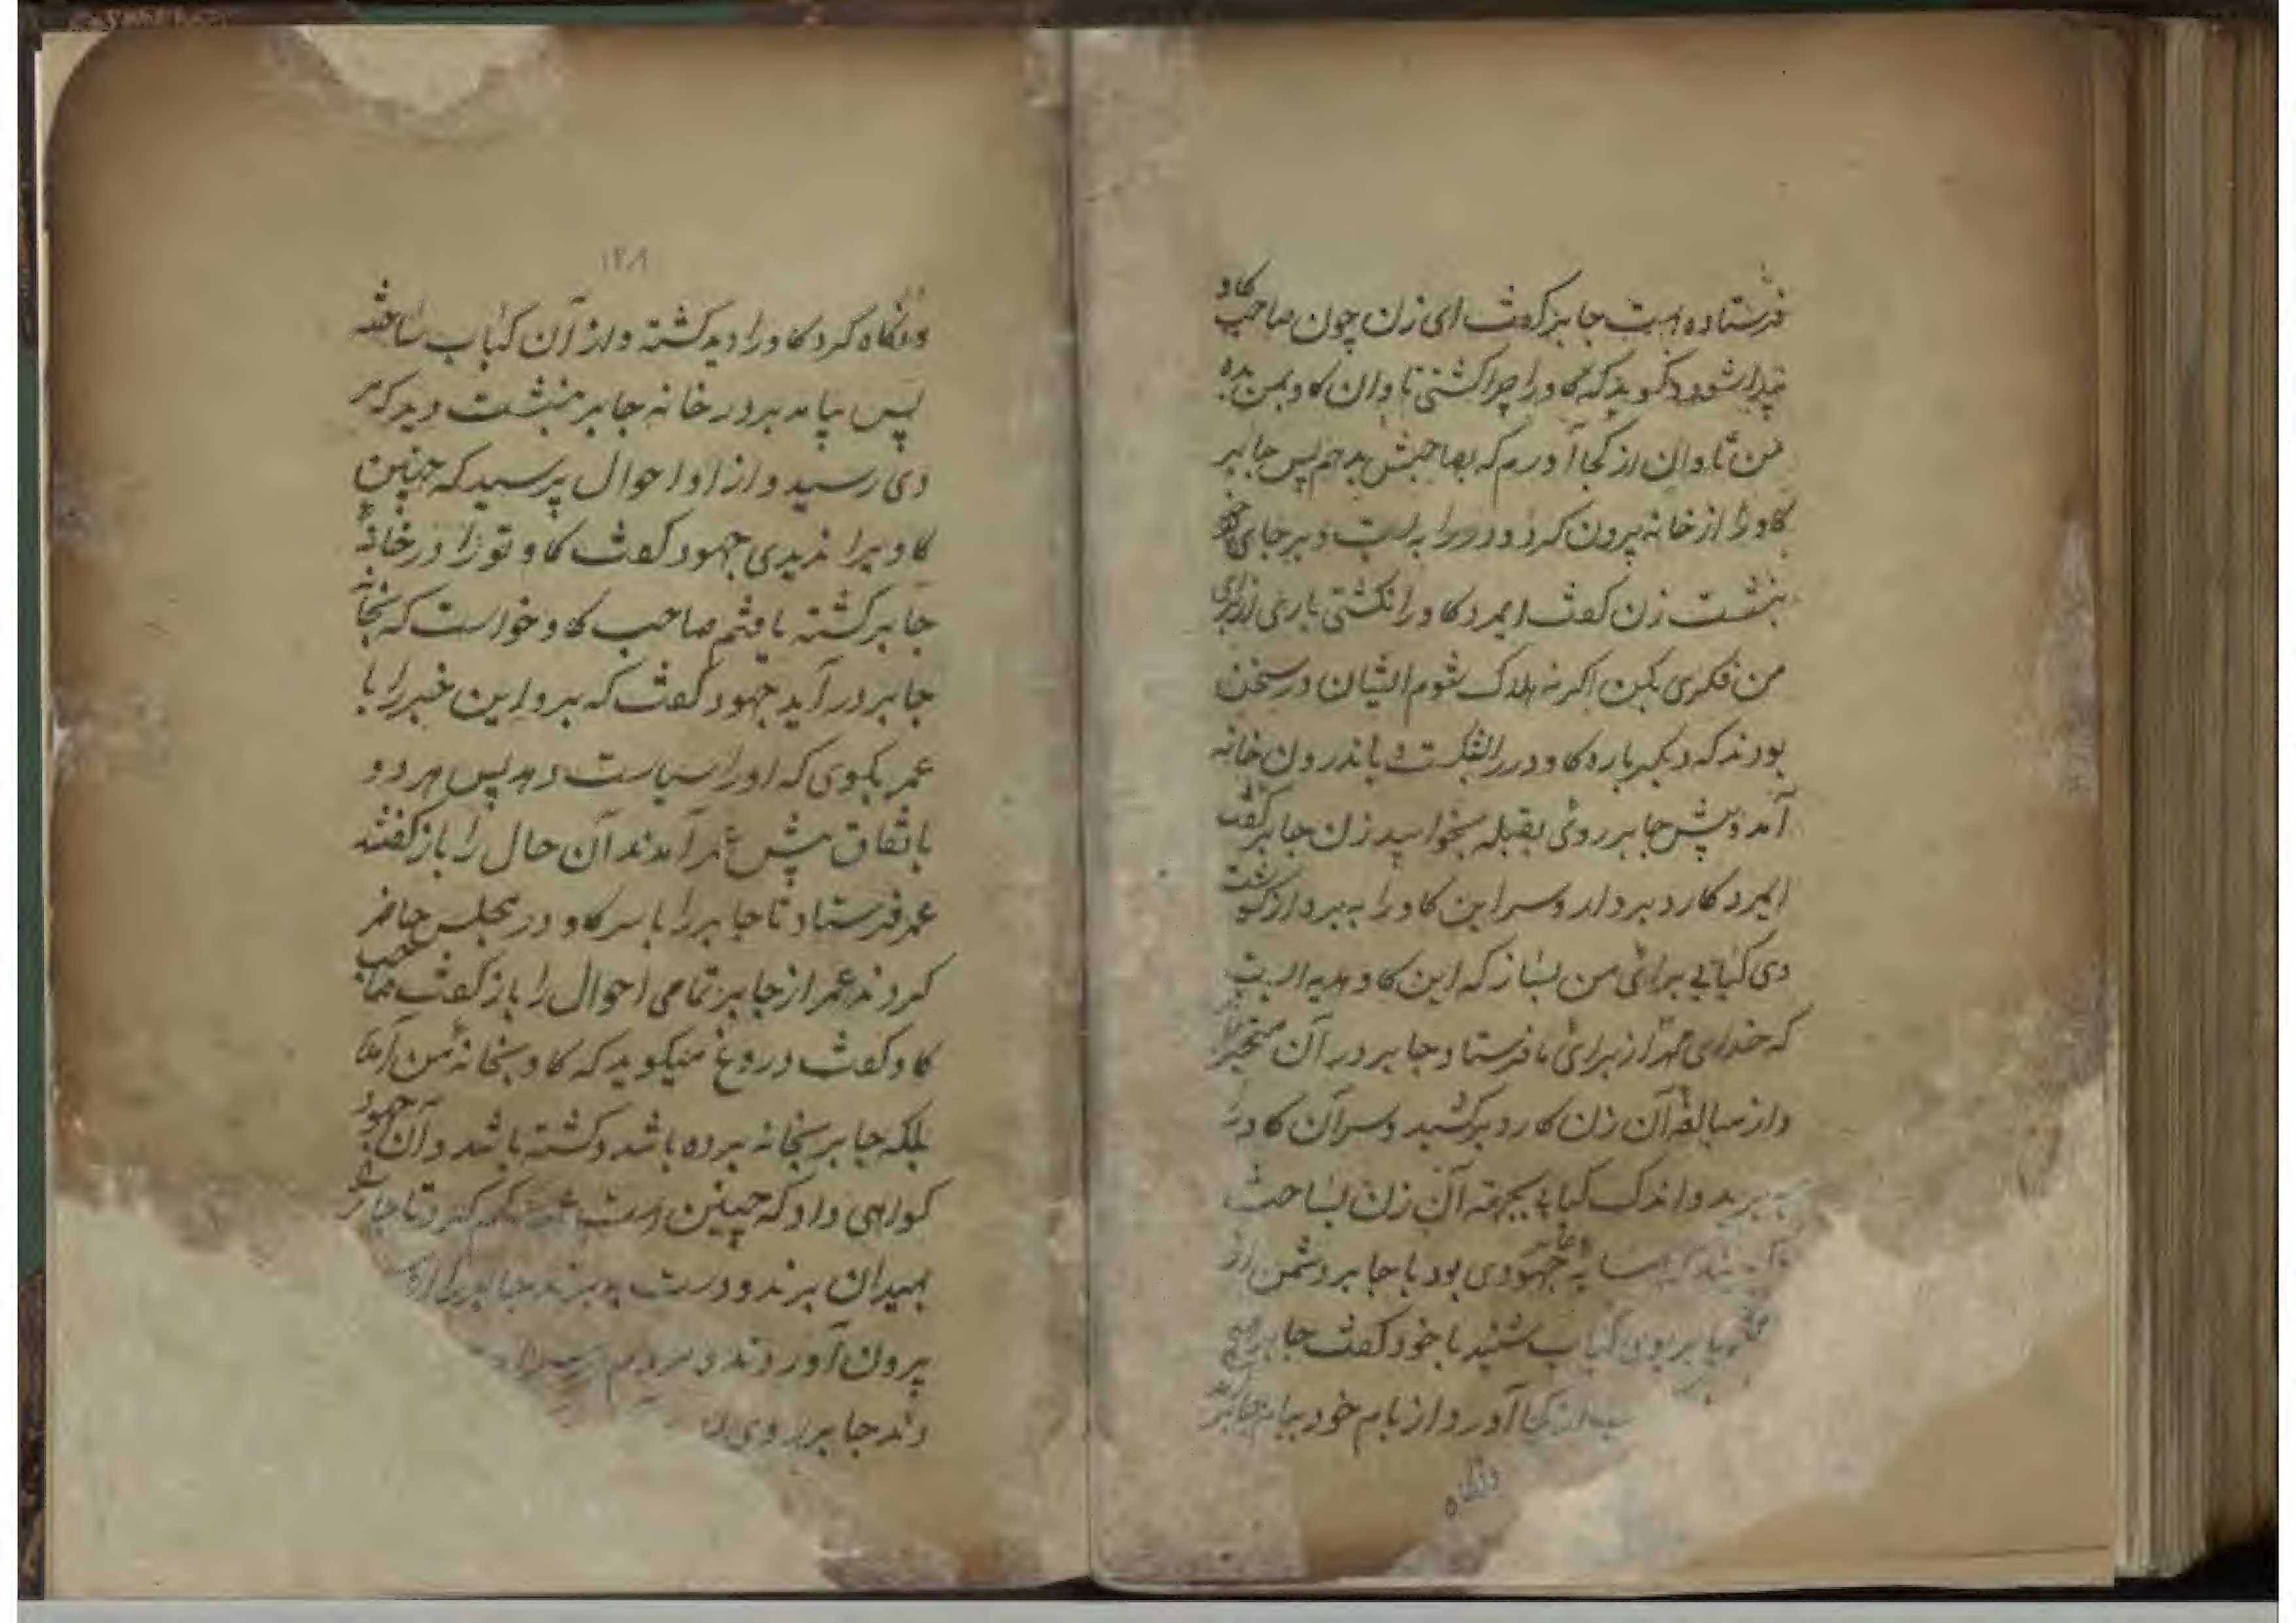 فرستاده است جابر کفت ای زن چون صاحب کاو
پیدا شود و کوید که کاو را چرا کشتی تاوان کاو بمن بده
من تاوان از کجا آورم که بصاحبش بدهم پس جابر
کاو را از خانه پرون کرد و در را به بست و بر جای خود
بنشست زن کفت ایمرد کاو را نکشتی باری از برای
من فکری بکن اکر نه هلاک شوم ایشان در سخن
بودند که دیکر باره کاو در را بشکست و باندرون خانه
آمد و پیش جابر روی بقبله بخوابید زن جابر کفت
ایمرد کارد بردار و سر این کاو را به بر و از کوشت
وی کبابی برای من بساز که این کاو هدیه است
که خدای از برای ما فرستاد جابر در آن متحیر
و از مبالغه آن زن کارد برکشید و سر آن کاو را
به برید و اندک کبابی بجهة آن زن بساخت
جهودی بود با جابر دشمن از
بوی کباب شنید با خود کفت جابر
از کجا آورد از بام خود ببام جابر آمد
ونکاه
۱۲۸
ونکاه کرد کاو را دید کشته و از آن کباب ساخته
پس بیامد بر در خانه جابر بنشست دید که مر
دی رسید و از او احوال پرسید که چنین
کاو مرا ندیدی جهود کفت کاو تو را در خانه
جابر کشته یافتم صاحب کاو خواست که بخانه
جابر در آید جهود کفت که برو این خبر را با
عمر بکوی که او را سیاست دهد پس هر دو
باتفاق پیش عمر آمدند آن حال را باز کفتند
عمر فرستاد تا جابر را با سر کاو در مجلس حاضر
کردند عمر از جابر تمامی احوال را باز کفت صاحب
کاو کفت دروغ میکوید که کاو بخانه من آمد
بلکه جابر بخانه برده باشد و کشته باشد و آن جهود
کواهی داد که چنین است عمر حکم کرد تا جابر را
بمیدان برند و دست به برند جابر را از
پرون آوردند و مردم
دند جابر روی